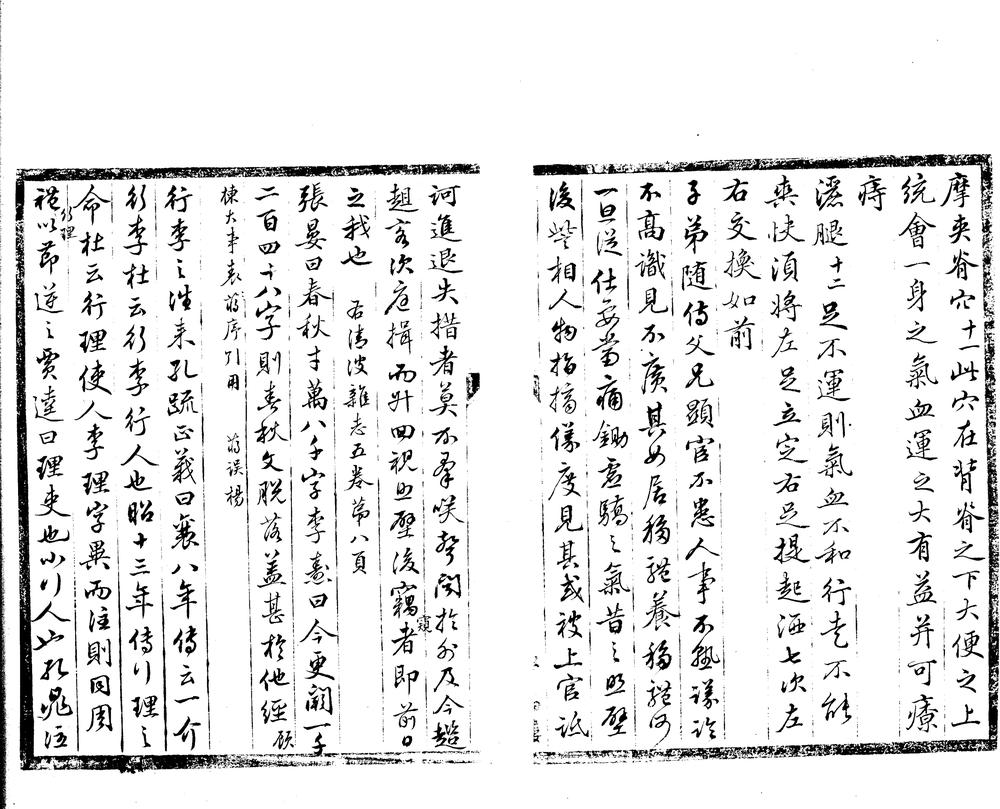 摩夾脊穴十一此穴在背脊之下大便之上
統會一身之氣血運之大有益并可療
痔
灑腿十二足不運則氣血不和行走不能
爽快須將左足立定右足提起洒七次左
右交換如前
子弟隨侍父兄顯宦不患人事不熟議論
不高識見不廣其如居移氣養移體何
一旦從仕要當痛鋤虛驕之氣昔之照壁
後訾相人物指摘儀度見其或被上官詆
訶進退失措者莫不羣咲聲聞於外及今趨
趄客次庭揖而升回視照壁後竊窺者即前日
之我也 右清波雜志五卷第八頁
張晏曰春秋才萬八千字李燾曰今更闕一千
二百四十八字則春秋文脫落蓋甚於他經 顧
棟大事表蔣序引用 蔣誤楊
行李之往来孔疏正義曰襄八年傳云一介
行李杜云行李行人也昭十三年傳行理之
命杜云行理使人李理字異而注則同周
行理
禮以節逆之賈逵曰理吏也小行人也孔晁注